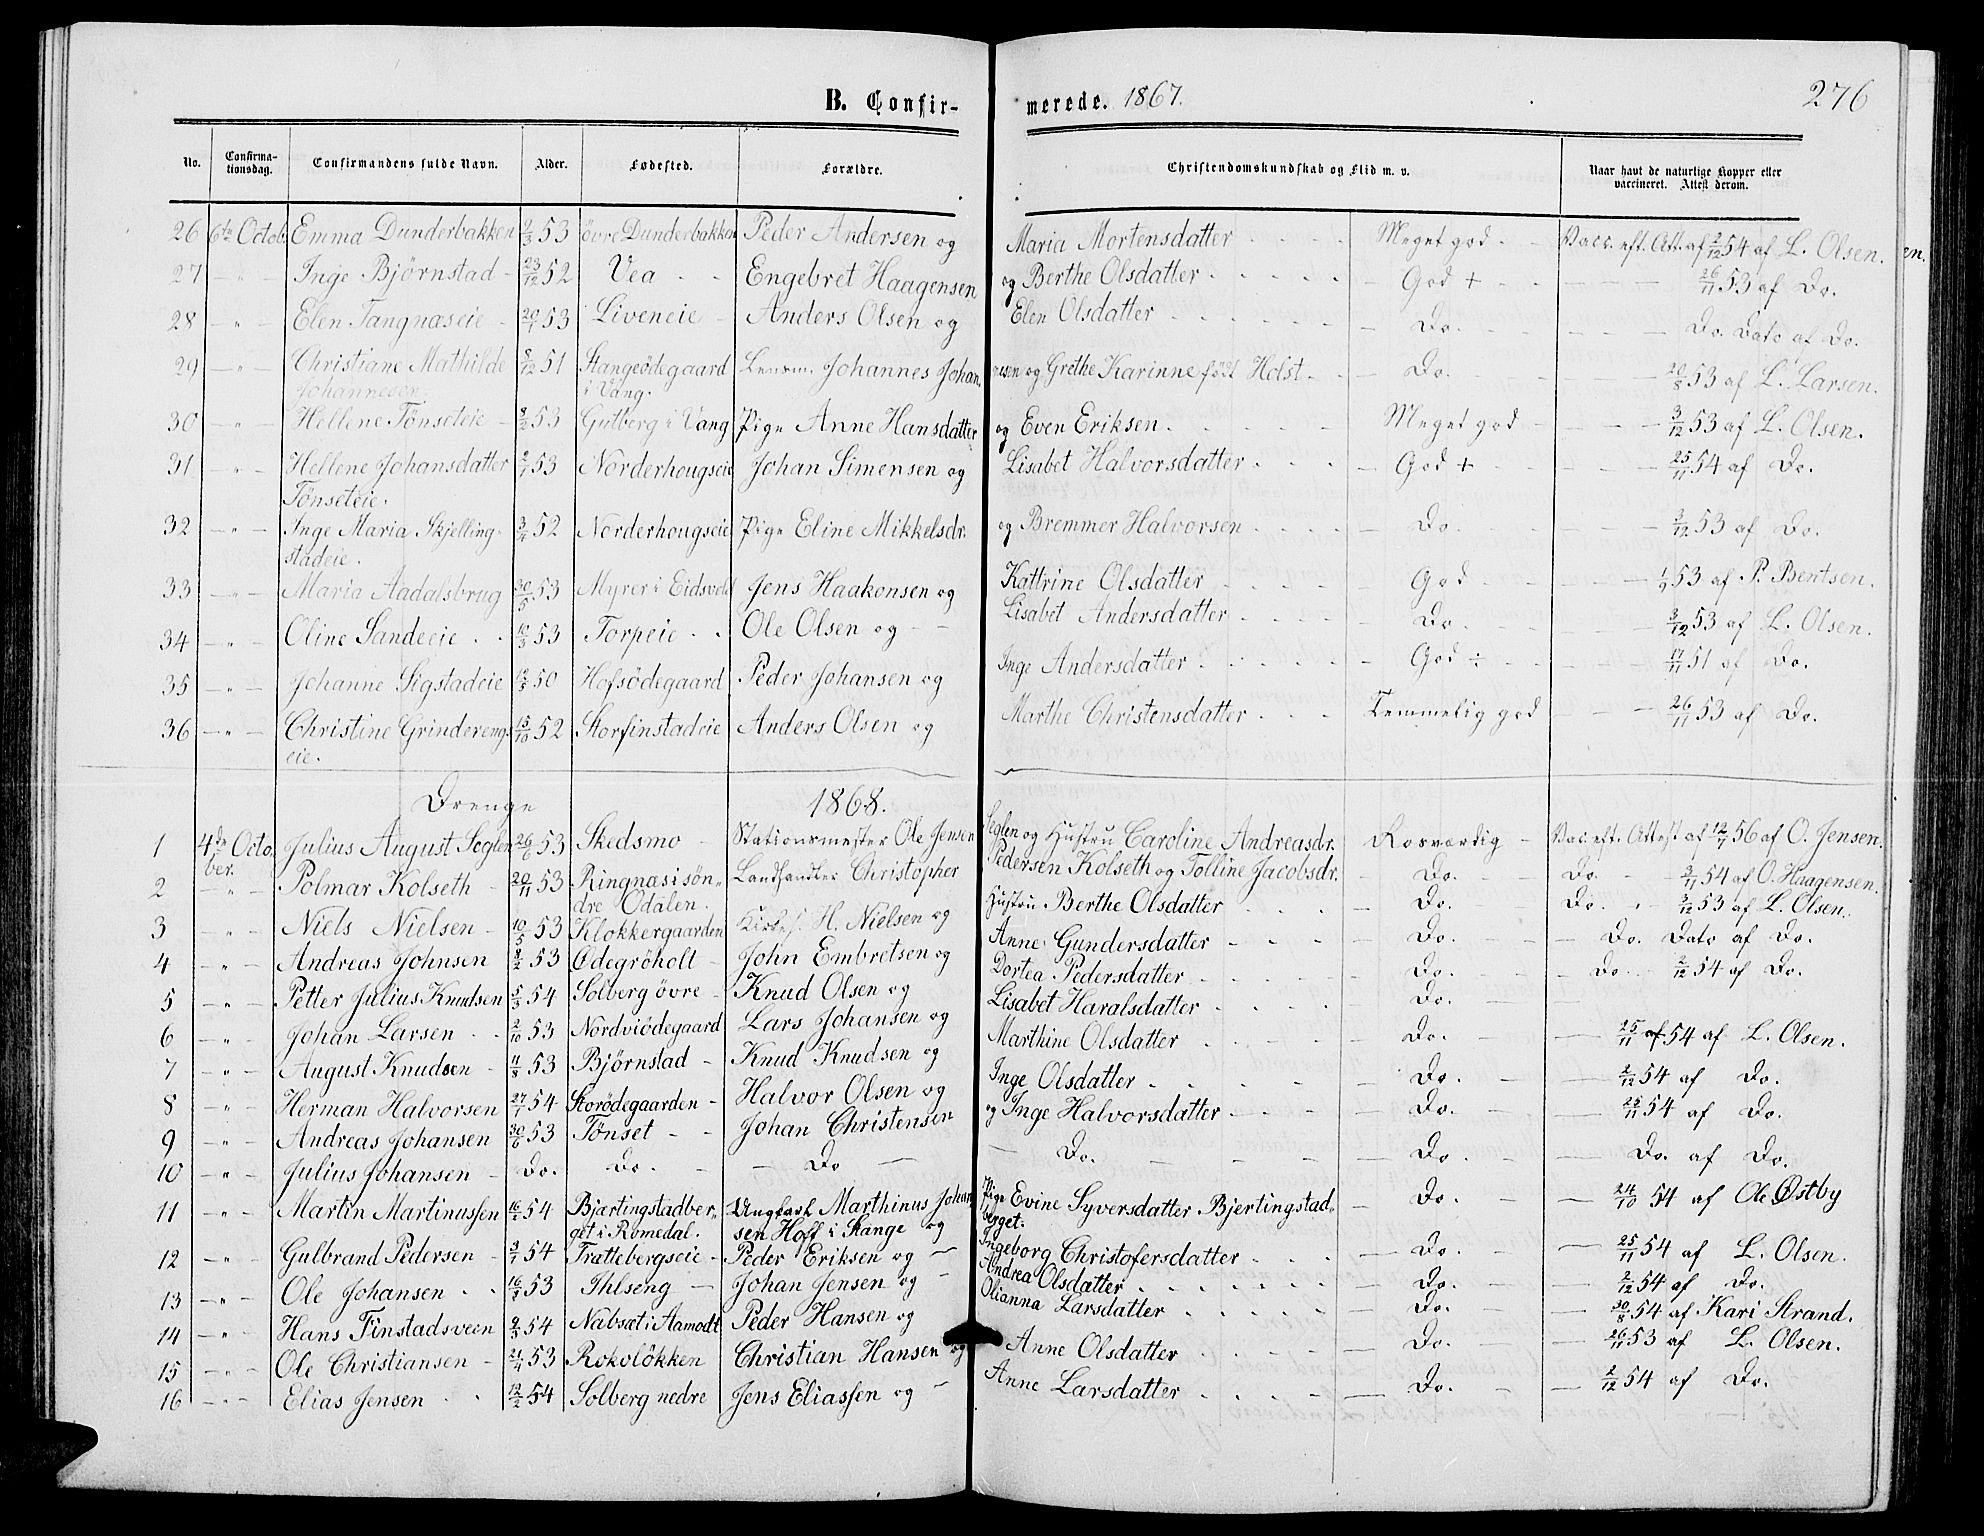 B. Confir- merede. 1867. 276
No. Confirma-tionsdag. Confirmandens fulde Navn. Alder. Fødested. Forældre. Christendomskundskab og Flid m. v. Naar havt de naturlige Kopper eller vaccineret. Attest derom.
26 6te Octob. Emma Dunderbakken 53 övre Dunderbakken Peder Andersen og Maria Mortensdatter Meget god Vacc. eft. Att. af 2/12 54 af L. Olsen.
27 - " - Inge Bjørnstad 23/12 52 Vea Engebret Haagensen og Berthe Olsdatter God + 26/11 53 af Do.
28 - " - Elen Tangnæseie 20/1 53 Liveneie Anders Olsen og Elen Olsdatter Do. Do. Dato af Do.
29 - " - Christiane Mathilde 8/12 51 Stangeödegaard Lensm. Johannes Johan. nesen og Grethe Karinne födt Holst Do. 20/8 53 af L. Larsen.
Johannesen. i Vang.
30 - " - Hellene Tönseteie 8/2 53 Gutberg i Vang Pige Anne Hansdatter og Even Eriksen Meget god 3/12 53 af L. Olsen.
31 - " - Hellene Johansdatter 2/7 53 Norderhougseie Johan Simensen og Lisabet Halvorsdatter God + 25/11 54 af Do.
Tönseteie.
32 - " - Inge Maria Skjelling- 3/4 52 Norderhougseie Pige Eline Mikkelsdr. og Bremmer Halvorsen Do 3/12 53 af Do.
stadeie.
33 - " - Maria Aadalsbrug 30/5 53 Myrer i Eidsvold Jens Haakonsen og Kattrine Olsdatter God 1/9 53 af P. Bentsen.
34 - " - Oline Sandeeie 53 Torpeie Ole Olsen og Lisabet Andersdatter Do. 3/12 53 af L. Olsen.
35 - " - Johanne Sigstadeie 50 Hofsödegaard Peder Johansen og Inge Andersdatter God ÷ 17/11 51 af Do.
36 - " - Christine Grinderengs 15/10 52 Storfinstadeie Anders Olsen og Marthe Christensdatter Temmelig god 26/11 53 af Do.
eie.
Drenge 1868.
1 4de Octo- Julius August Seglen 26/6 53 Skedsmo Stationsmester Ole Jensen Seglen og Hustru Caroline Andreasdr. Rosværdig Vac. eft. Attest af 12/7 56 af O. Jensen.
ber.
2 - " - Polmar Kolseth 20/11 53 Ringnæs i søn- Landhandler Christopher Pedersen Kolseth og Tolline Jacobsdr. Do. Do. 3/11 54 af O. Haagensen.
dre Odalen.
3 - " - Niels Nielsen 10/5 53 Klokkergaarden H. Nielsen og Hustru Berthe Olsdatter Do. Do. 3/12 53 af L. Olsen.
4 - " - Andreas Johnsen 8/2 53 Ødegröholt John Embretsen og Anne Gundersdatter Do. Do. Dato af Do.
5 - " - Petter Julius Knudsen 5/3 54 Solberg övre Knud Olsen og Dortea Pedersdatter Do. Do. 2/12 54 af Do.
6 - " - Johan Larsen 2/10 53 Nordviödegaard Lars Johansen og Lisabet Haralsdatter Do. 25/11 af 54 af L. Olsen.
7 - " - August Knudsen 11/8 53 Bjørnstad Knud Knudsen og Marthine Olsdatter Do. 2/12 54 af Do.
8 - " - Herman Halvorsen 27/1 54 Storödegaarden Halvor Olsen og Inge Olsdatter Do. 25/11 54 af Do.
9 - " - Andreas Johansen 30/6 53 Tönset Johan Christensen og Inge Halvorsdatter Do. Do. af Do.
10 - " - Julius Johansen Do. Do. Do Do. Do.
11 - " - Martin Martinussen 54 Bjærtingstadber- Ungkarl Marthinus Johan- Pige Evine Syversdatter Bjertingstad- Do. 24/10 54 af Ole Østby
get i Romedal. sen Hoff i Stange og berget.
12 - " - Gulbrand Pedersen 3/7 54 Frættebergseie Peder Eriksen og Ingeborg Christofersdatter Do. 25/11 54 af L. Olsen.
13 - " - Ole Johansen 16/8 53 Ihlseng Johan Jensen og Andrea Olsdatter Do. 2/12 54 af Do.
14 - " - Hans Finstadsveen 54 Nabsæt i Aamodt Peder Hansen og Olianna Larsdatter Do. 30/8 54 af Kari Strand.
15 - " - Ole Christiansen 21/4 53 Rokolökken Christian Hansen og Anne Olsdatter Do. 26/11 53 af L. Olsen.
16 - " - Elias Jensen 12/2 54 Solberg nedre Jens Eliassen og Anne Larsdatter Do. 2/12 54 af Do.